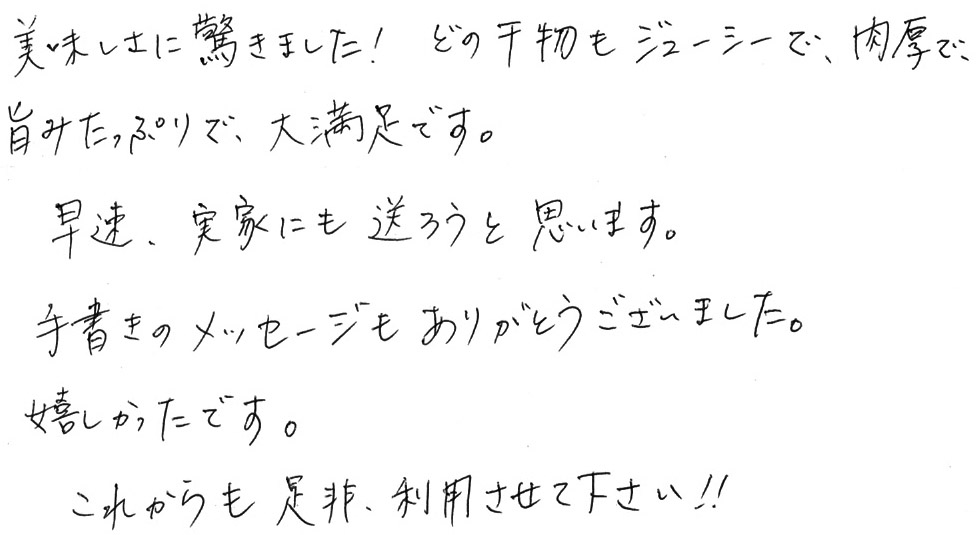 美味しさに驚きました! どの干物もジューシーで、肉厚で、
旨みたっぷりで、大満足です。
早速、実家にも送ろうと思います。
手書きのメッセージもありがとうございました。
嬉しかったです。
これからも是非、利用させて下さい!!